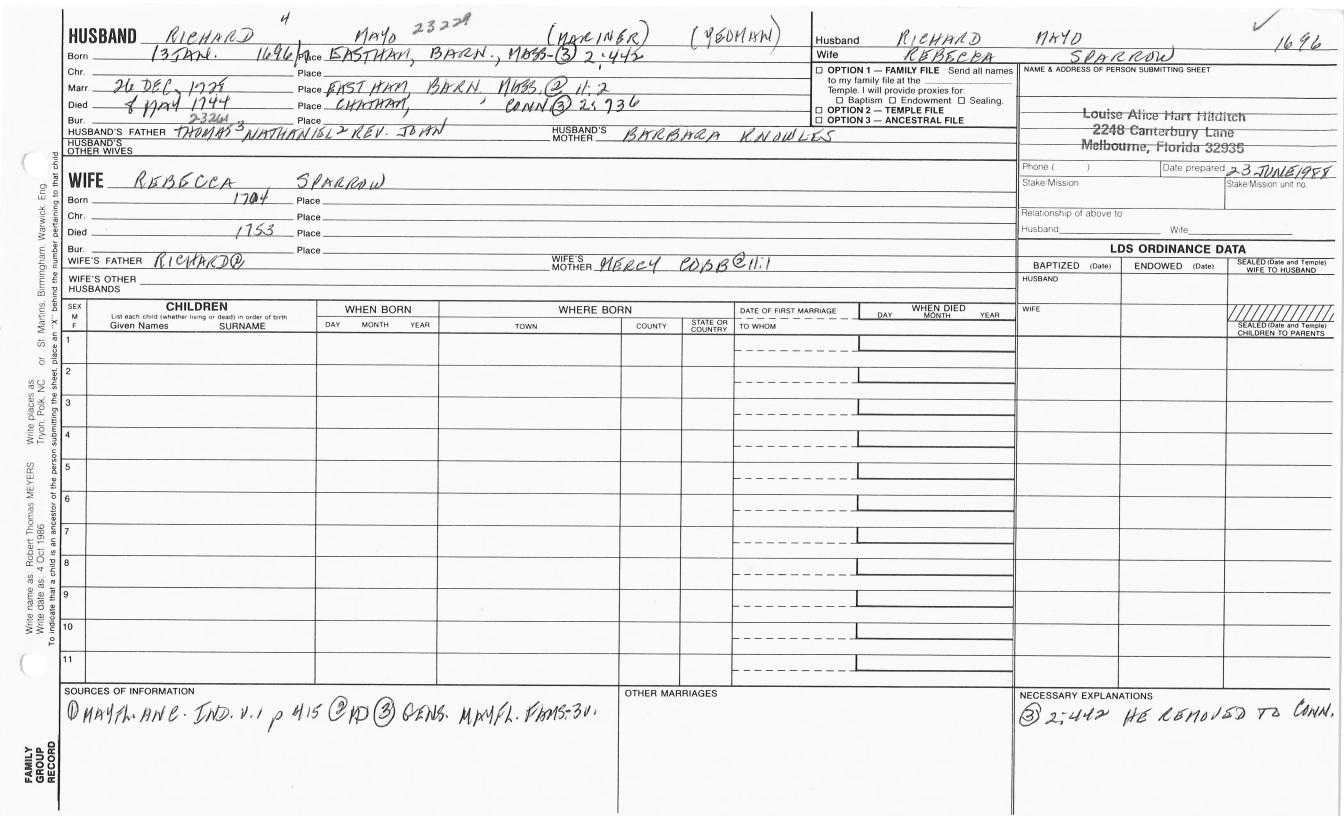 HUSBAND RICHARD 4 MAYO 23229 (MARINER) (YEOMAN)
Born 13 JAN. 1696/ Place EASTHAM, BARN., MASS-(3) 2:442
Chr. Place
Marr 26 DEC, 1725 Place EASTHAM, BARN. MASS. (2) 11:2
Died 8 MAY 1744 Place CHATHAM, ' CONN (3) 2:736
Bur. 23261 Place
HUSBAND'S FATHER THOMAS 3 NATHANIEL 2 REV. JOHN HUSBAND'S MOTHER BARBARA KNOWLES
HUSBAND'S OTHER WIVES
WIFE REBECCA SPARROW
Born 1704 Place
Chr. Place
Died 1753 Place
Bur. Place
WIFE'S FATHER RICHARD (2) WIFE'S MOTHER MERCY COBB (2) 11:1
WIFE'S OTHER HUSBANDS
Husband RICHARD MAYO 1696
Wife REBECCA SPARROW
☐ OPTION 1 — FAMILY FILE Send all names
to my family file at the
Temple. I will provide proxies for:
☐ Baptism ☐ Endowment ☐ Sealing.
☐ OPTION 2 — TEMPLE FILE
☐ OPTION 3 — ANCESTRAL FILE
NAME & ADDRESS OF PERSON SUBMITTING SHEET
Louise Alice Hart Hilditch
2248 Canterbury Lane
Melbourne, Florida 32935
Phone ( ) Date prepared 23 JUNE 1988
Stake/Mission Stake/Mission unit no.
Relationship of above to
Husband Wife
LDS ORDINANCE DATA
BAPTIZED (Date) ENDOWED (Date) SEALED (Date and Temple) WIFE TO HUSBAND
HUSBAND
WIFE
SEALED (Date and Temple) CHILDREN TO PARENTS
SEX M F
CHILDREN
List each child (whether living or dead) in order of birth
Given Names SURNAME
WHEN BORN
DAY MONTH YEAR
WHERE BORN
TOWN COUNTY STATE OR COUNTRY
DATE OF FIRST MARRIAGE
TO WHOM
WHEN DIED
DAY MONTH YEAR
1
2
3
4
5
6
7
8
9
10
11
SOURCES OF INFORMATION
(1) MAYFL. ANC. IND. V.1 p 415 (2) MD (3) GENS. MAYFL. FAMS-3V.
OTHER MARRIAGES
NECESSARY EXPLANATIONS
(3) 2:442 HE REMOVED TO CONN.
Write name as: Robert Thomas MEYERS Write places as: Tryon, Polk, NC or St. Martins, Birmingham, Warwick, Eng.
Write date as: 4 Oct 1986
To indicate that a child is an ancestor of the person submitting the sheet, place an "X" behind the number pertaining to that child
FAMILY
GROUP
RECORD